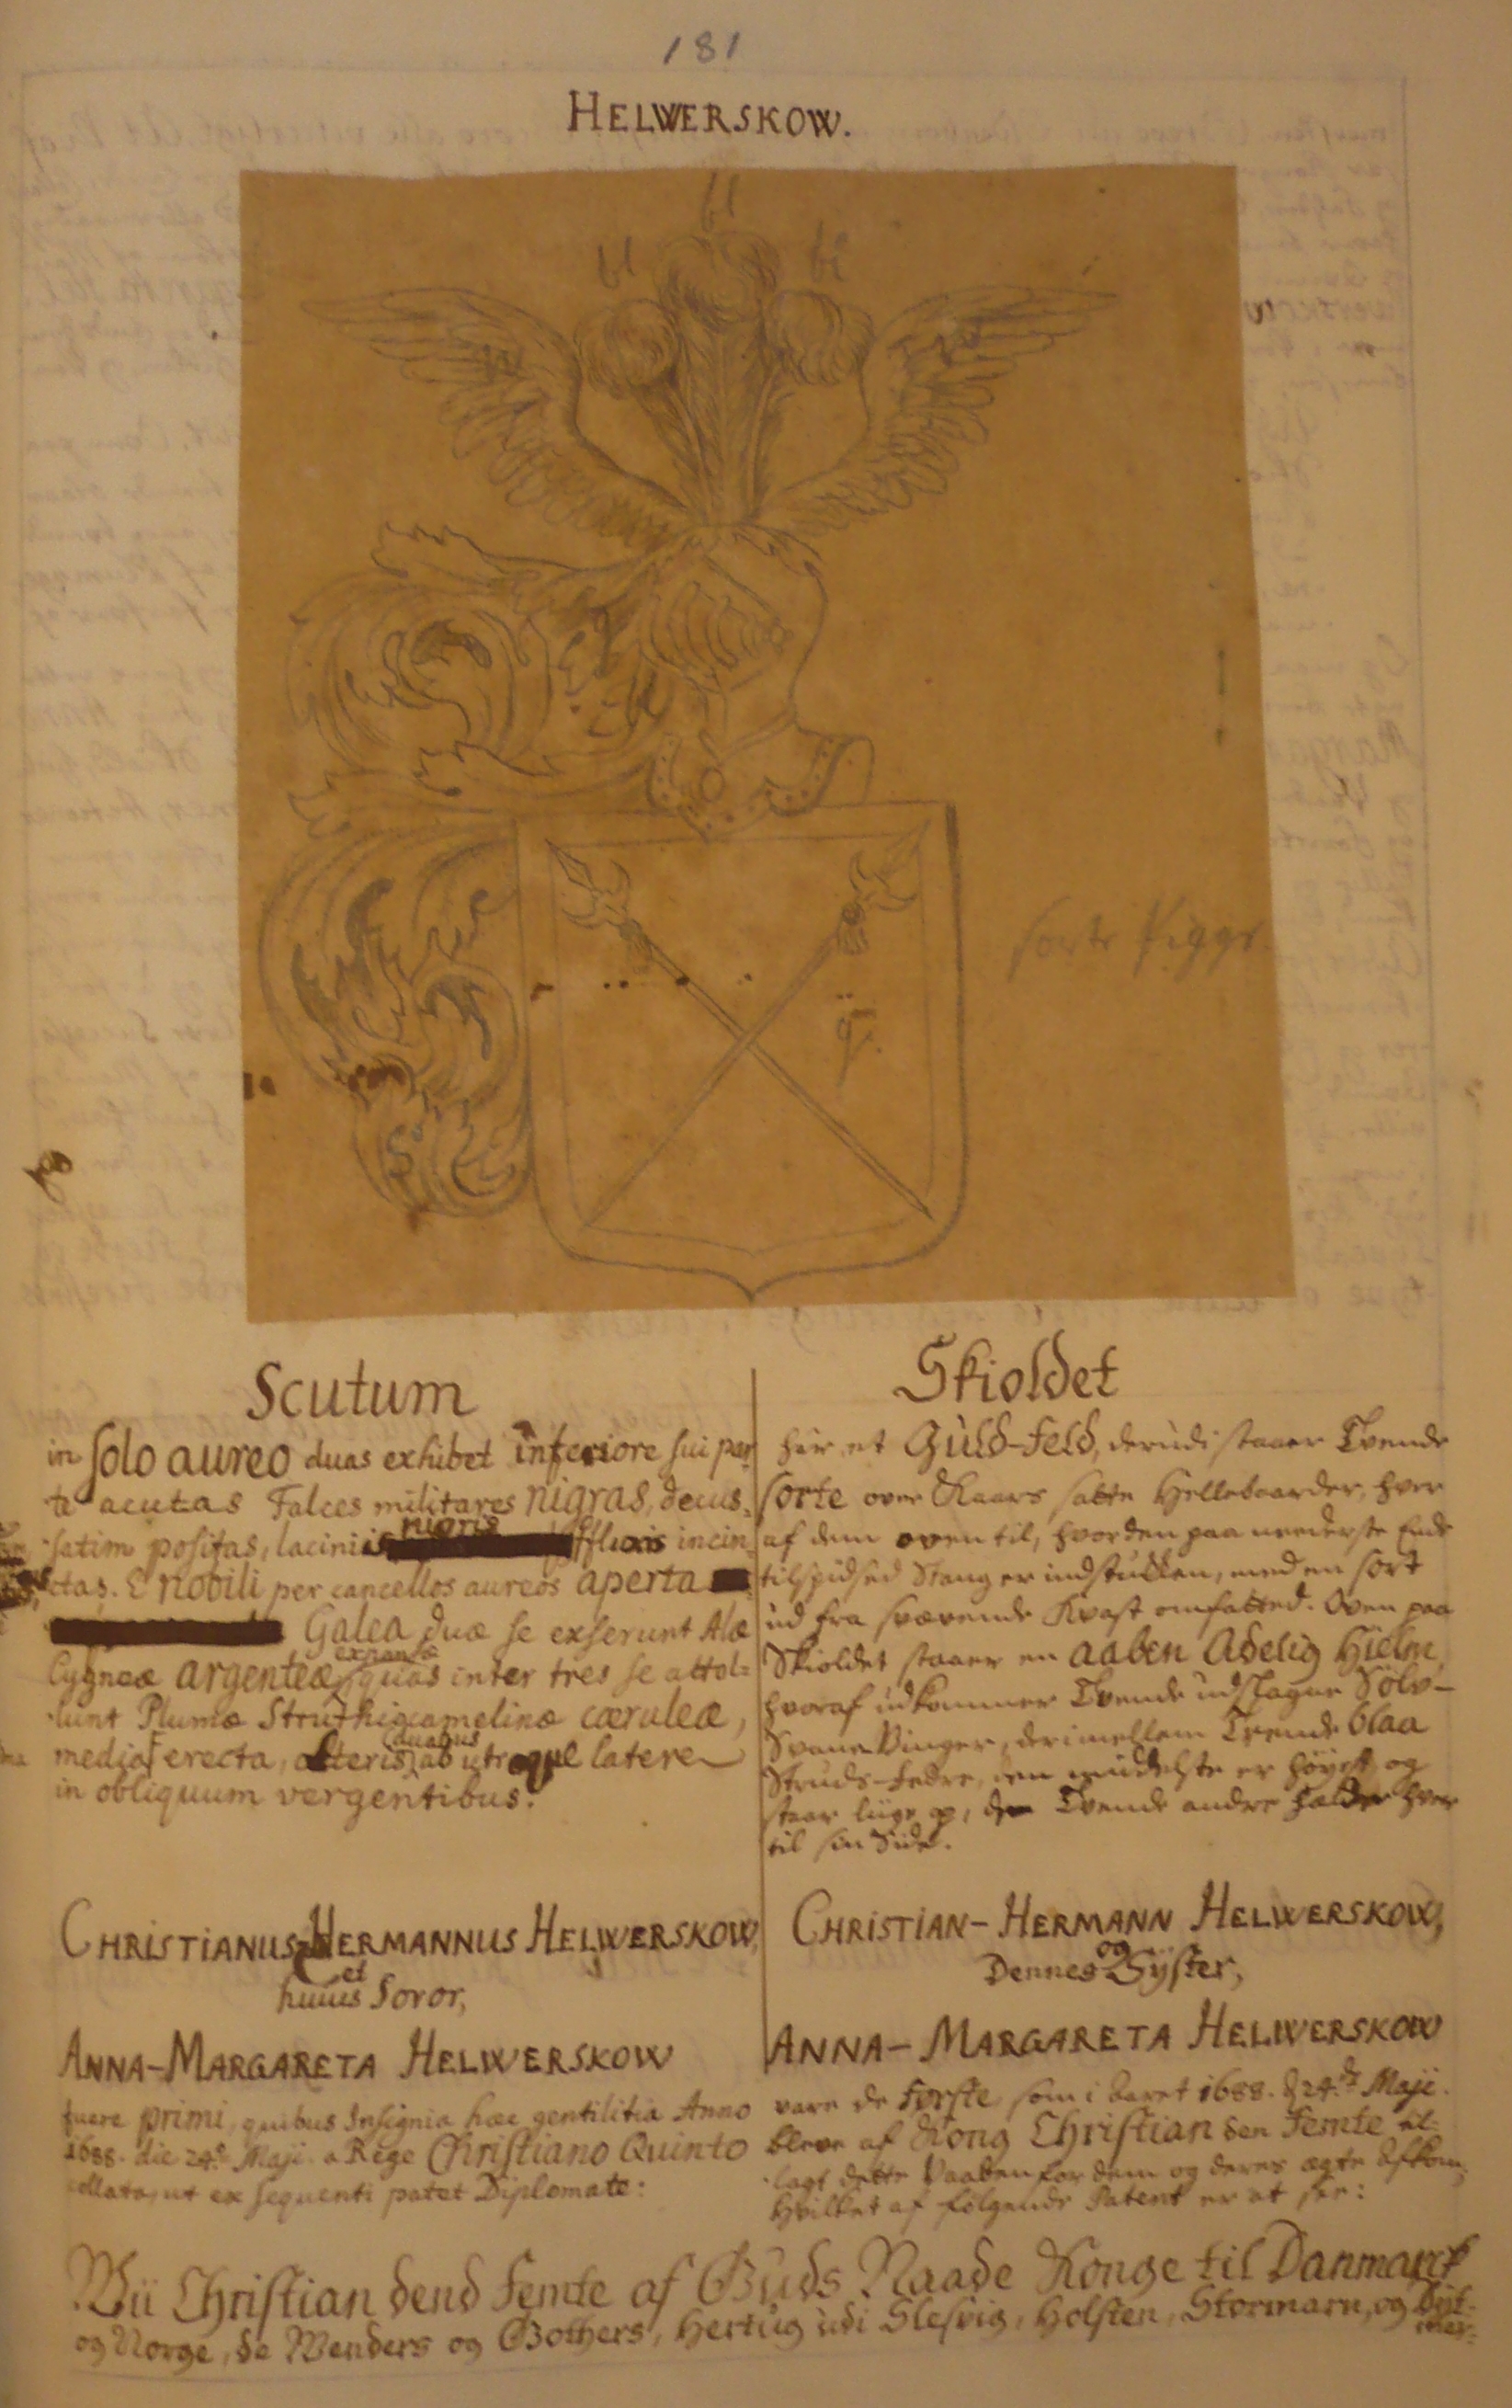 181
HELWERSKOW.
bl
bl
bl
S
g
S
sorte Pigge
g.
Scutum
in solo aureo duas exhibet inferiore sui par
te acutas Falces militares nigras, decus-
satim positas, laciniis nigris effluxis incin-
ctas. E nobili per cancellos aureos aperta
Galea duæ se exserunt Alæ
Cygneæ argenteæ expansæ, quas inter tres se attol-
lunt Plumæ Struthiocamelinæ cæruleæ,
media erecta, alteris duabus ab utroque latere
in obliquum vergentibus.
Skioldet
hår et Guld-feld, derudi staaer Tvende
sorte over Kaars satte Hellebaarder, hver
af dem oven til, hvorden paa neederste Ende
tilspidsed Stang er indstukken, med en sort
ud fra svævende Kvast omfatted. Oven paa
Skioldet staaer en aaben Adelig Hielm,
hvoraf udkommer Tvende udslagne Sölv-
Svane Vinger, derimellem Trende blaa
Struds-fedre, den midelste er höyest og
staar liige op, de Tvende andre halder hver
til sin Side.
CHRISTIANUS HERMANNUS HELWERSKOW,
et
huius Soror,
ANNA-MARGARETA HELWERSKOW
fuere primi, quibus Insignia hæc gentilitia Anno
1688. die 24. Maji a Rege Christiano Quinto
collata, ut ex sequenti patet Diplomate:
CHRISTIAN-HERMANN HELWERSKOW,
og
Dennes Syster,
ANNA-MARGARETA HELWERSKOW
vare de Förste, som i aaret 1688. d 24. Maji
bleve af Kong Christian den Femte til-
lagt dette Vaaben for dem og deres ægte Afkom;
Hvilket af fölgende Patent er at see:
Wii Christian dend Femte af Guds Naade Konge til Danmarck
og Norge, de Wenders og Gothers, Hertug udi Slesvig, Holsten, Stormarn, og Dit-
mer-